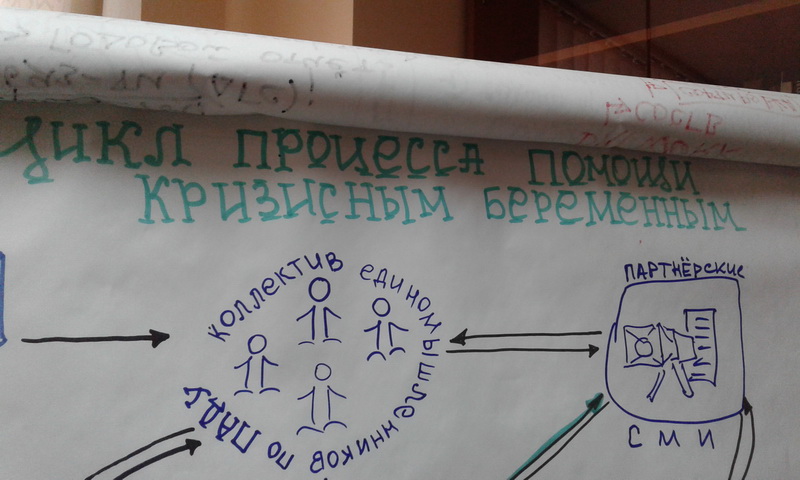 ЦИКЛ ПРОЦЕССА ПОМОЩИ
КРИЗИСНЫМ БЕРЕМЕННЫМ
КОЛЛЕКТИВ ЕДИНОМЫШЛЕННИКОВ ПО ПАДД
ПАРТНЁРСКИЕ
СМИ